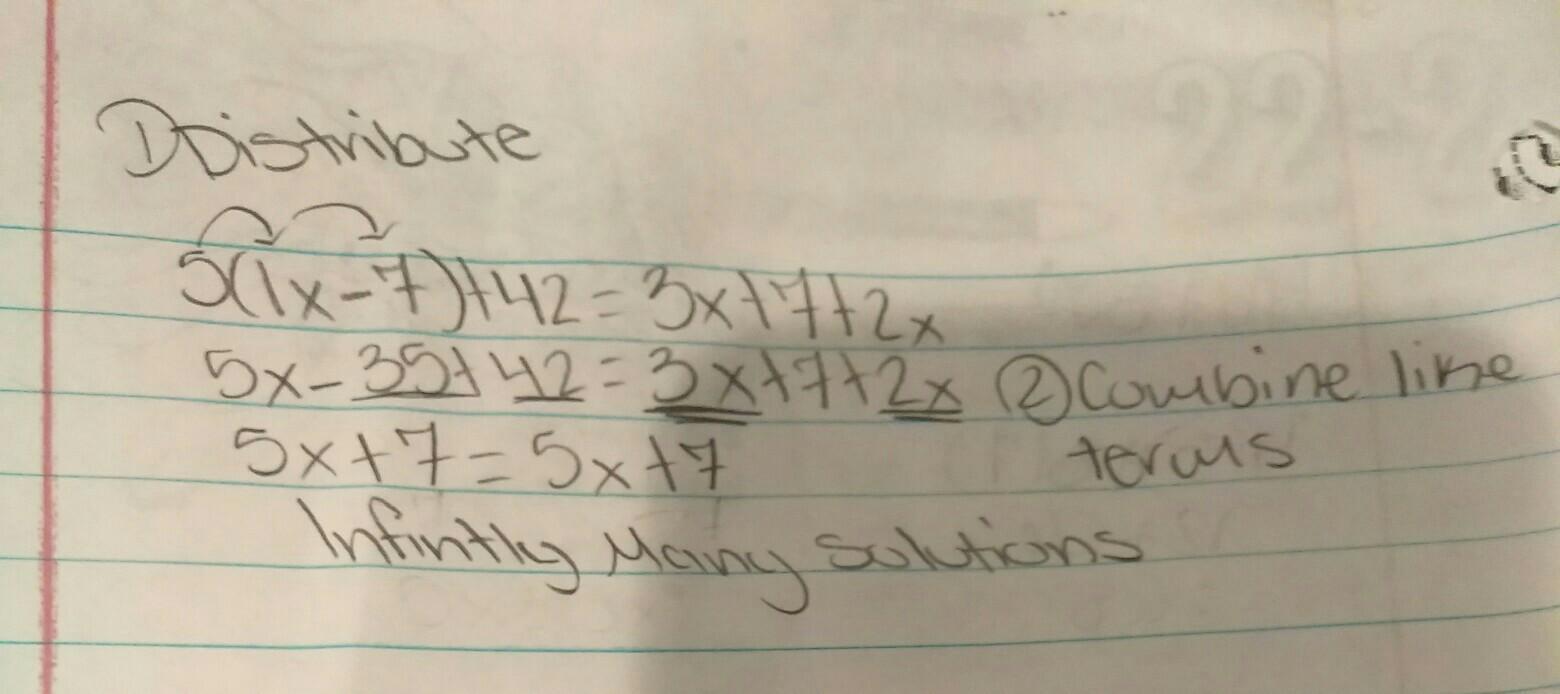 1) Distribute
5(1x-7)+42=3x+7+2x
5x-35+42=3x+7+2x ② Combine like
5x+7=5x+7 terms
Infintly Many Solutions